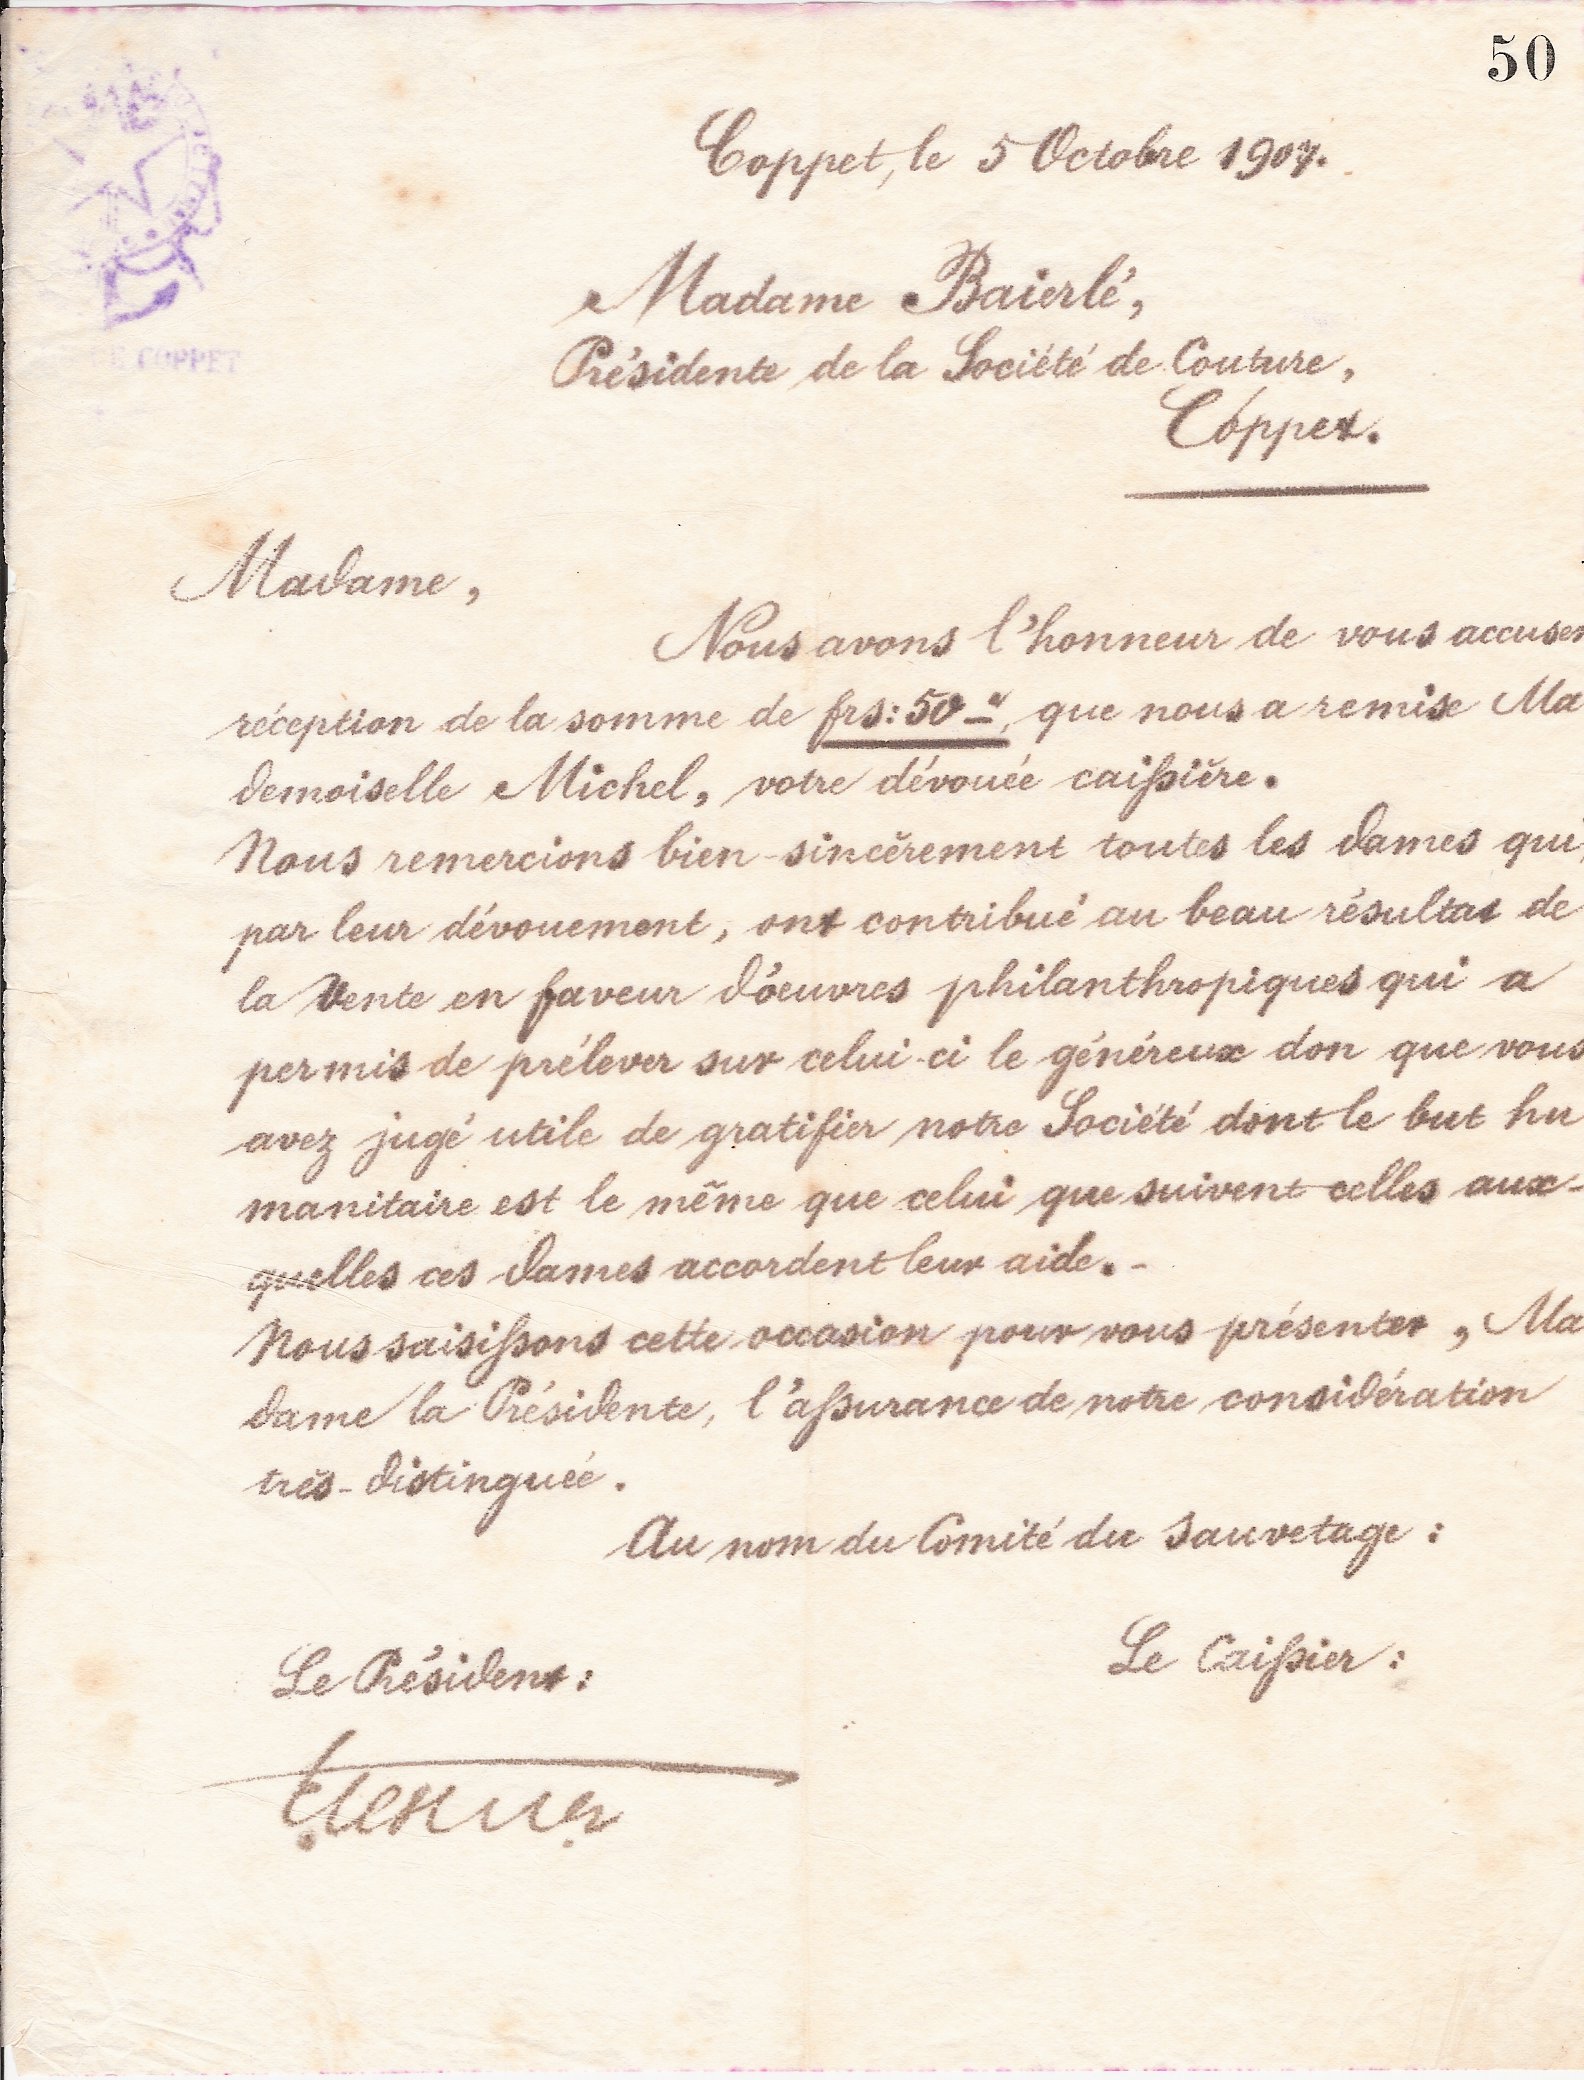 50
Coppet, le 5 Octobre 1907.
Madame Baierlé,
Présidente de la Société de Couture,
Coppet.
DE COPPET
Madame,
Nous avons l'honneur de vous accuser
réception de la somme de frs: 50 –", que nous a remise Ma
demoiselle Michel, votre dévouée caißière.
Nous remercions bien sincèrement toutes les dames qui,
par leur dévouement, ont contribué au beau résultat de
la Vente en faveur d'oeuvres philanthropiques qui a
permis de prélever sur celui-ci le généreux don que vous
avez jugé utile de gratifier notre Société dont le but hu
manitaire est le même que celui que suivent celles aux-
quelles ces dames accordent leur aide.-
Nous saisißons cette occasion pour vous présenter, Ma
dame la Présidente, l'aßurance de notre considération
très-distinguée.
Au nom du Comité du Sauvetage :
Le Président :
Le Caißier :